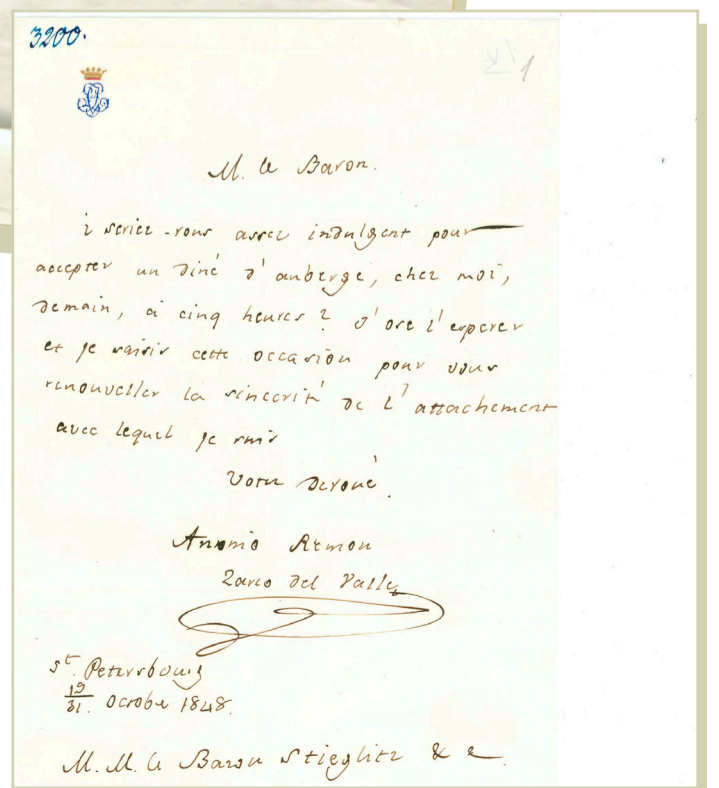 3200.
1
M. le Baron.
¿ seriez-vous assez indulgent pour
accepter un diné d'auberge, chez moi,
demain, à cinq heures? J'ose l'esperer
et je saisis cette occasion pour vous
renouveller la sincerité de l'attachement
avec lequel je suis
Votre devoué.
Antonio Remon
Zarco del Valle
St. Petersbourg
19
31. Octobre 1848.
M. M. le Baron Stieglitz & a